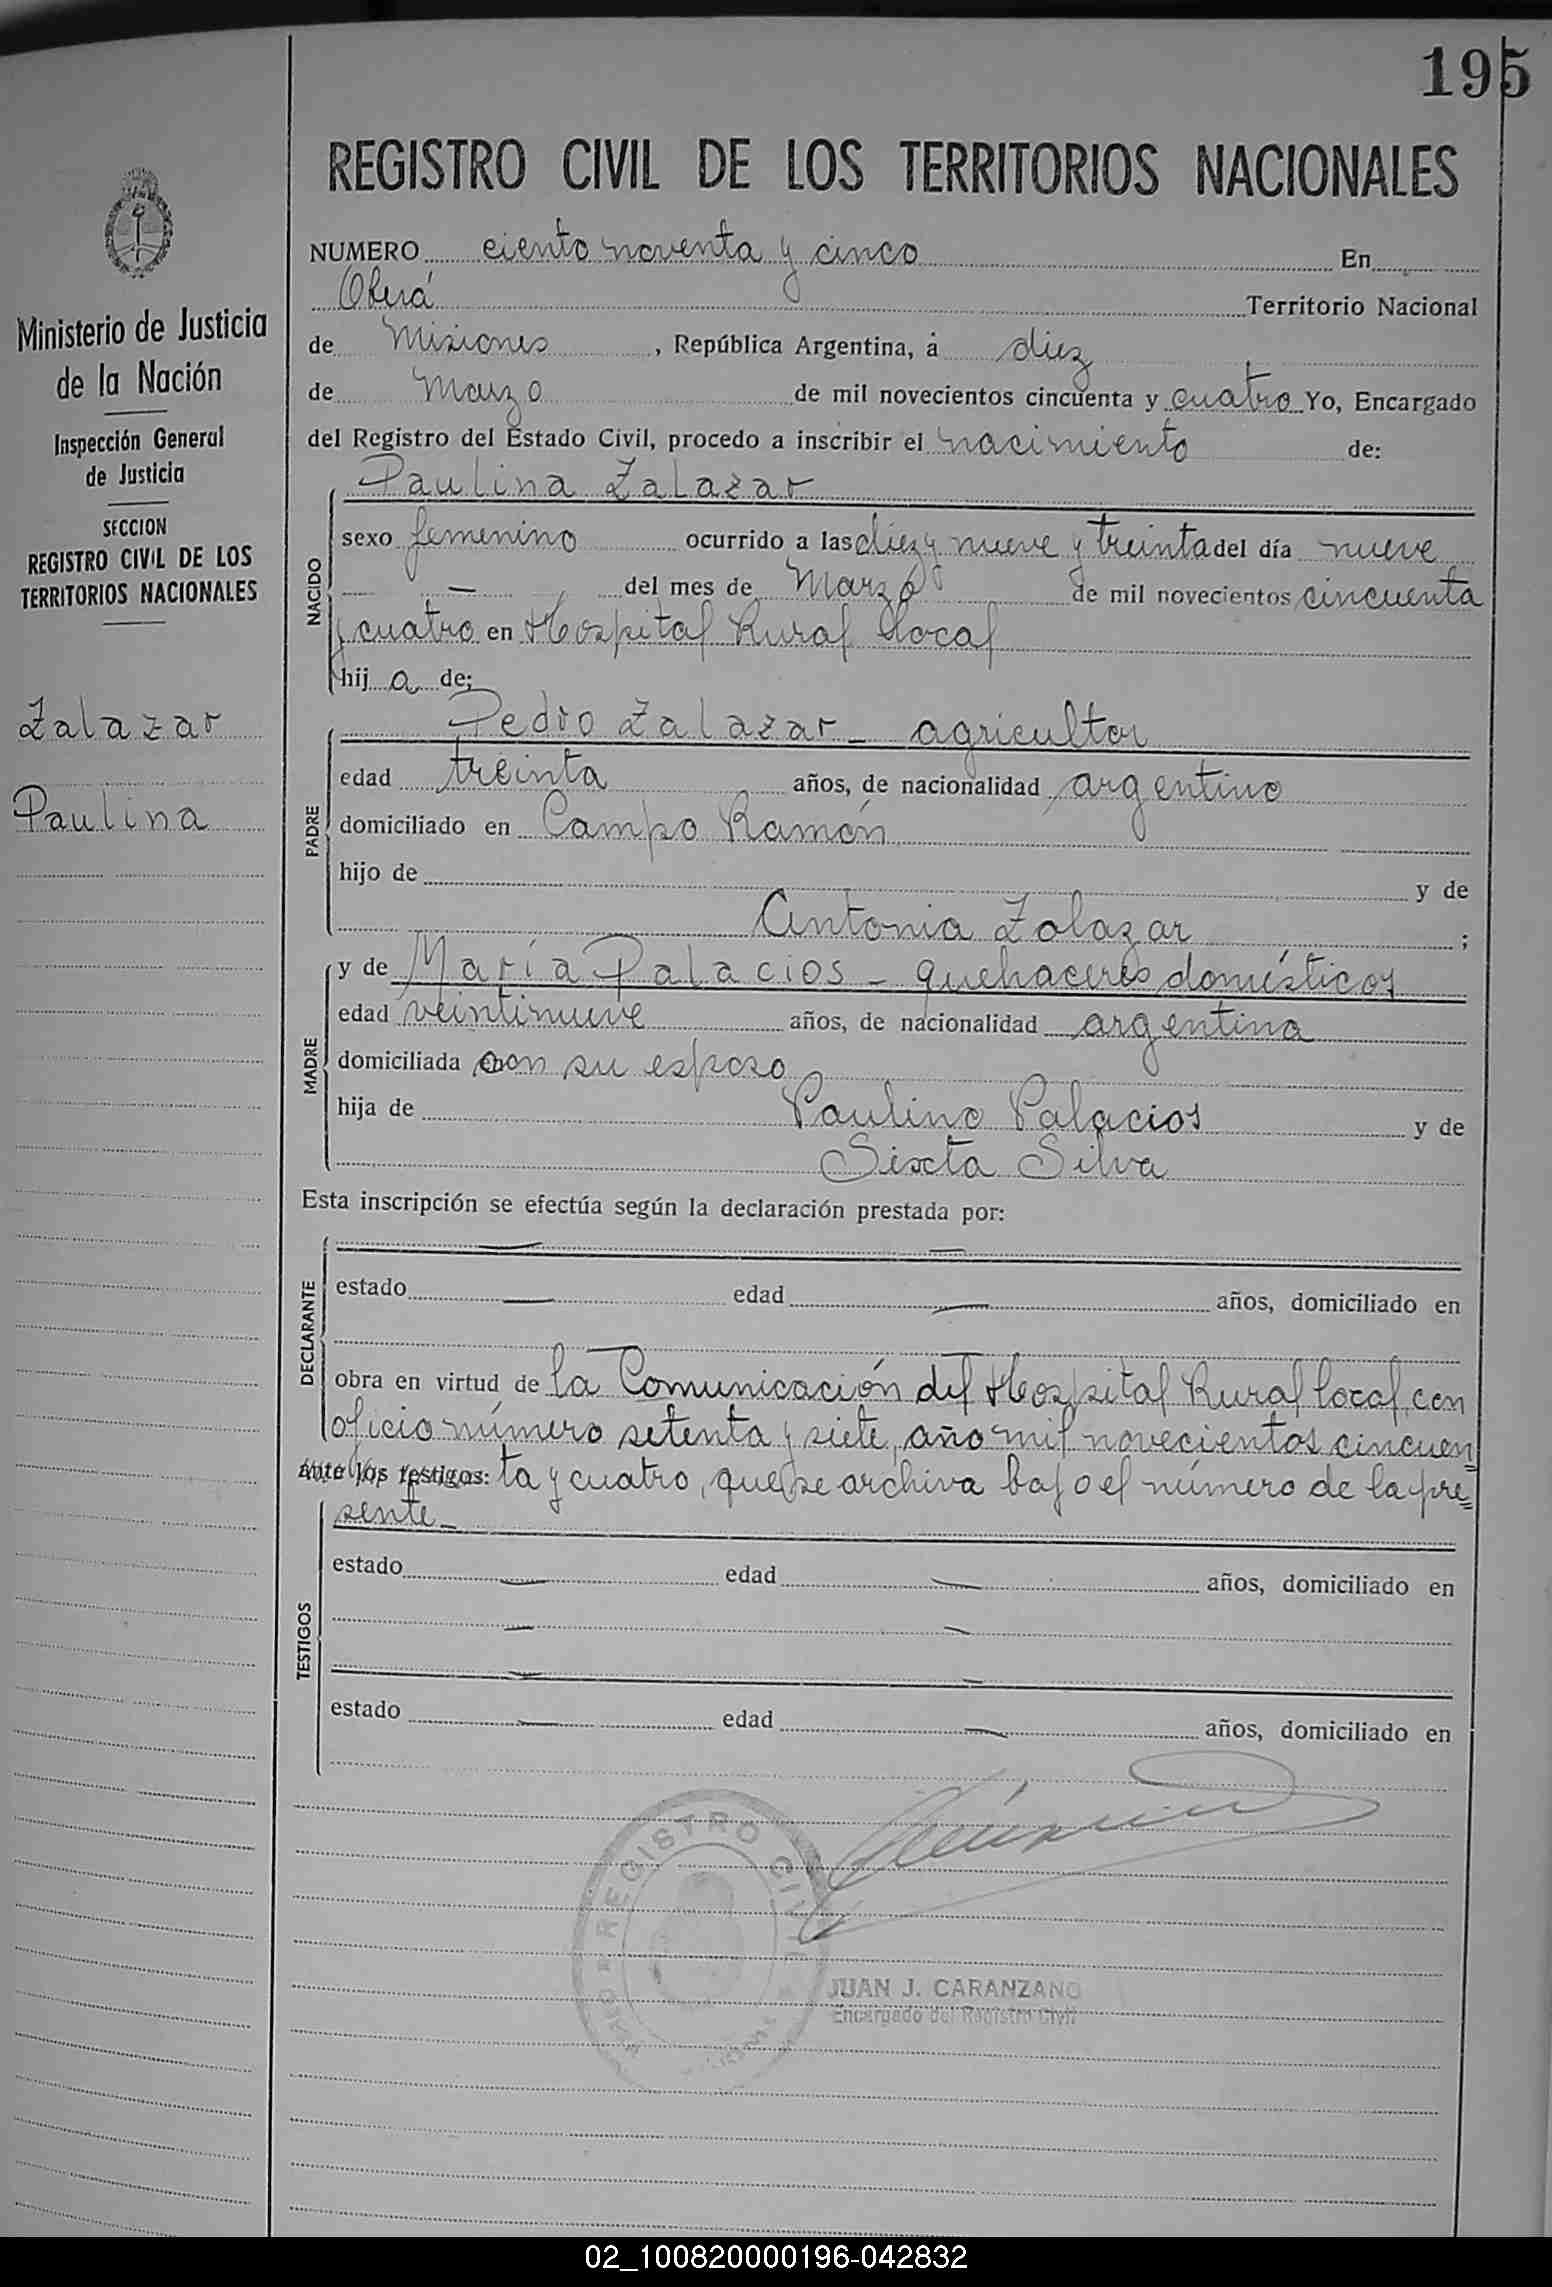 195
REGISTRO CIVIL DE LOS TERRITORIOS NACIONALES
Ministerio de Justicia
de la Nación
Inspección General
de Justicia
SECCION
REGISTRO CIVIL DE LOS
TERRITORIOS NACIONALES
Zalazar
Paulina
NUMERO ciento noventa y cinco En
Oberá Territorio Nacional
de Misiones, República Argentina, á diez
de Marzo de mil novecientos cincuenta y cuatro Yo, Encargado
del Registro del Estado Civil, procedo a inscribir el nacimiento de:
Paulina Zalazar
NACIDO
sexo femenino ocurrido a las diez y nueve y treinta del día nueve
— del mes de Marzo de mil novecientos cincuenta
y cuatro en Hospital Rural Local
hij a de;
Pedro Zalazar - agricultor
PADRE
edad treinta años, de nacionalidad argentino
domiciliado en Campo Ramón
hijo de y de
Antonia Zalazar ;
y de María Palacios - quehaceres domésticos
MADRE
edad veintinueve años, de nacionalidad argentina
domiciliada con su esposo
hija de Paulino Palacios y de
Sixta Silva
Esta inscripción se efectúa según la declaración prestada por:
— —
DECLARANTE
estado — edad — años, domiciliado en
obra en virtud de la Comunicación del Hospital Rural local, con
oficio número setenta y siete, año mil novecientos cincuen=
ante los testigos: ta y cuatro, que se archiva bajo el número de la pre=
sente_
TESTIGOS
estado — edad — años, domiciliado en
— —
— —
estado — edad — años, domiciliado en
REGISTRO CIVIL
JUAN J. CARANZANO
Encargado del Registro Civil
02_100820000196-042832